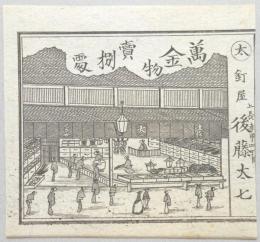 太
釘屋
後藤太七
萬金物賣捌處
太